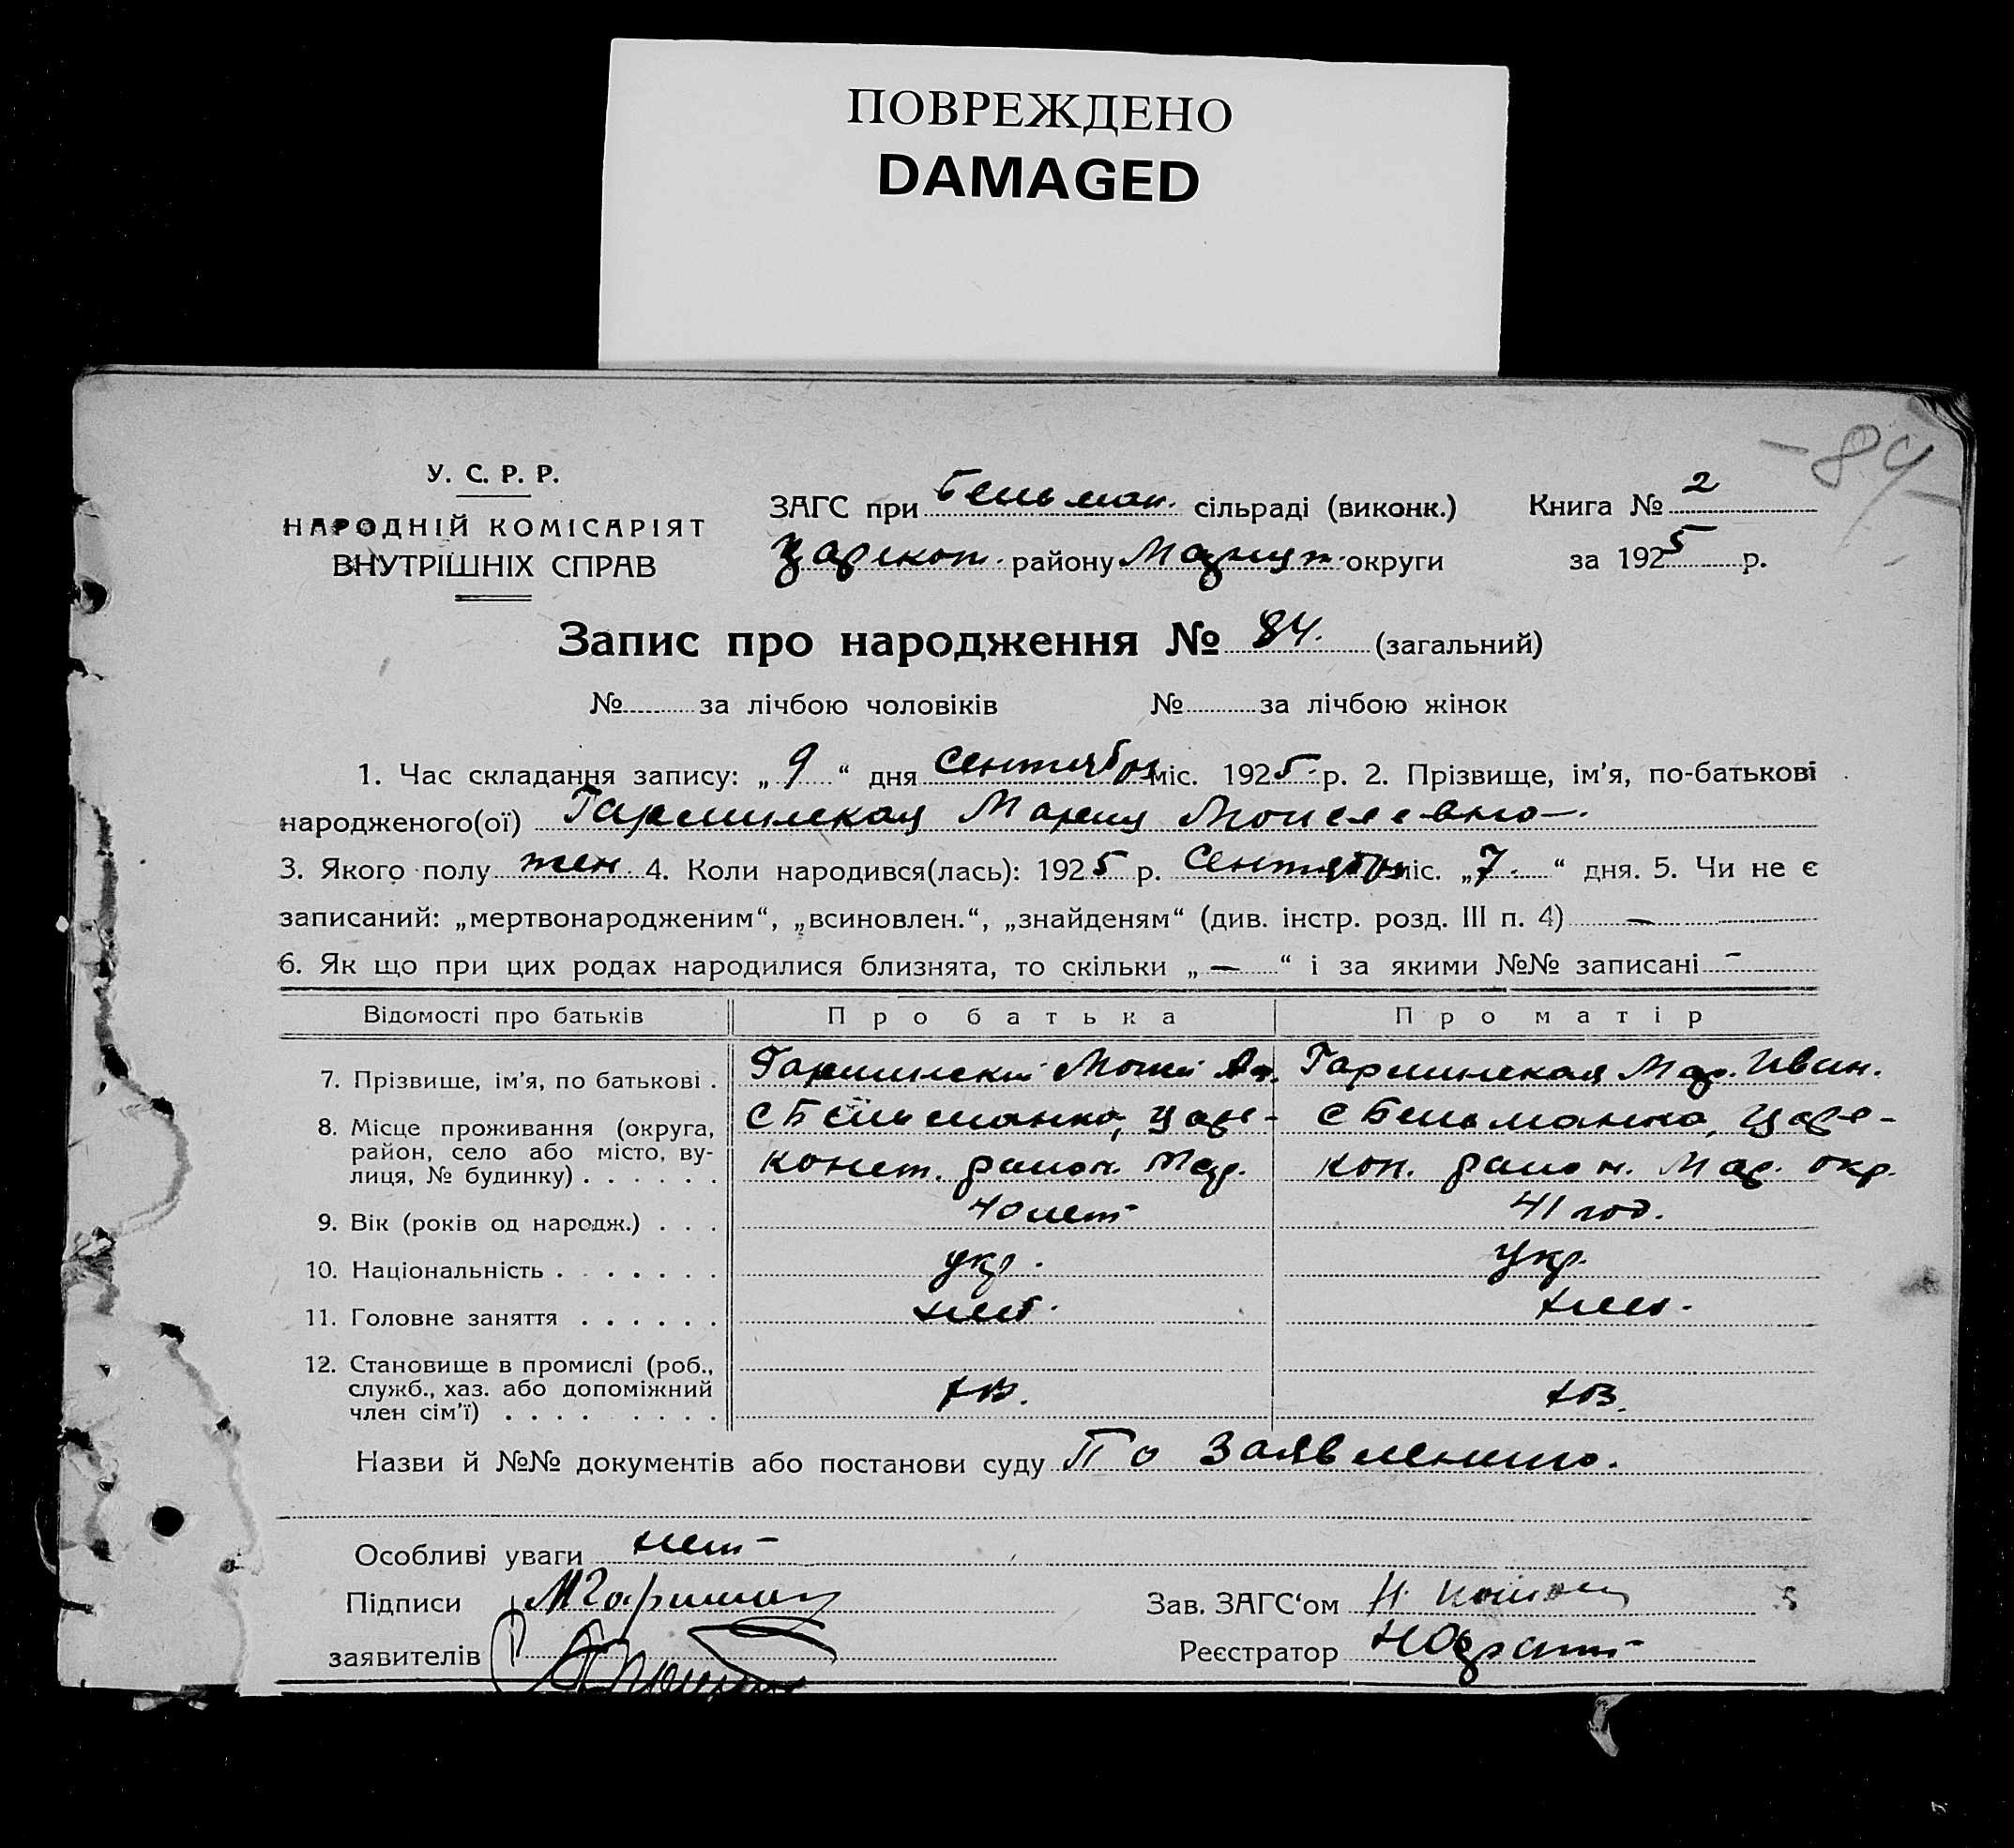 ПОВРЕЖДЕНО
DAMAGED
-84-
У. С. Р. Р.
НАРОДНІЙ КОМІСАРІЯТ
ВНУТРІШНІХ СПРАВ
ЗАГС при Бельман. сільраді (виконк.) Книга № 2
Царекон. району Мариуп. округи за 1925 р.
Запис про народження № 84. (загальний)
№ за лічбою чоловіків № за лічбою жінок
1. Час складання запису: „ 9 “ дня сентября міс. 1925 р. 2. Прізвище, ім’я, по-батькові
народженого(ої) Мария Моисеевна
3. Якого полу жен. 4. Коли народився(лась): 1925 р. Сентября міс. „ 7 “ дня. 5. Чи не є
записаний: „мертвонародженим“, „всиновлен.“, „знайденям“ (див. інстр. розд. III п. 4) —
6. Як що при цих родах народилися близнята, то скільки „ — “ і за якими №№ записані -
Відомості про батьків Про батька Про матір
7. Прізвище, ім’я, по батькові . Мар. Иван.
8. Місце проживання (округа, с Бельманка, Царе- с Бельманка, Царе-
район, село або місто, ву-
лиця, № будинку) . . . . . . конст. район. Мар. кон. район. Мар. окр.
9. Вік (років од народж.) . . . 40 лет 41 год.
10. Національність . . . . . . . укр. Укр.
11. Головне заняття . . . . . . хлеб. хлеб.
12. Становище в промислі (роб.,
служб., хаз. або допоміжний
член сім’ї) . . . . . . . . хв. хв.
Назви й №№ документів або постанови суду По заявлению.
Особливі уваги нет
Підписи
Зав. ЗАГС‘ом
заявителів
Реєстратор